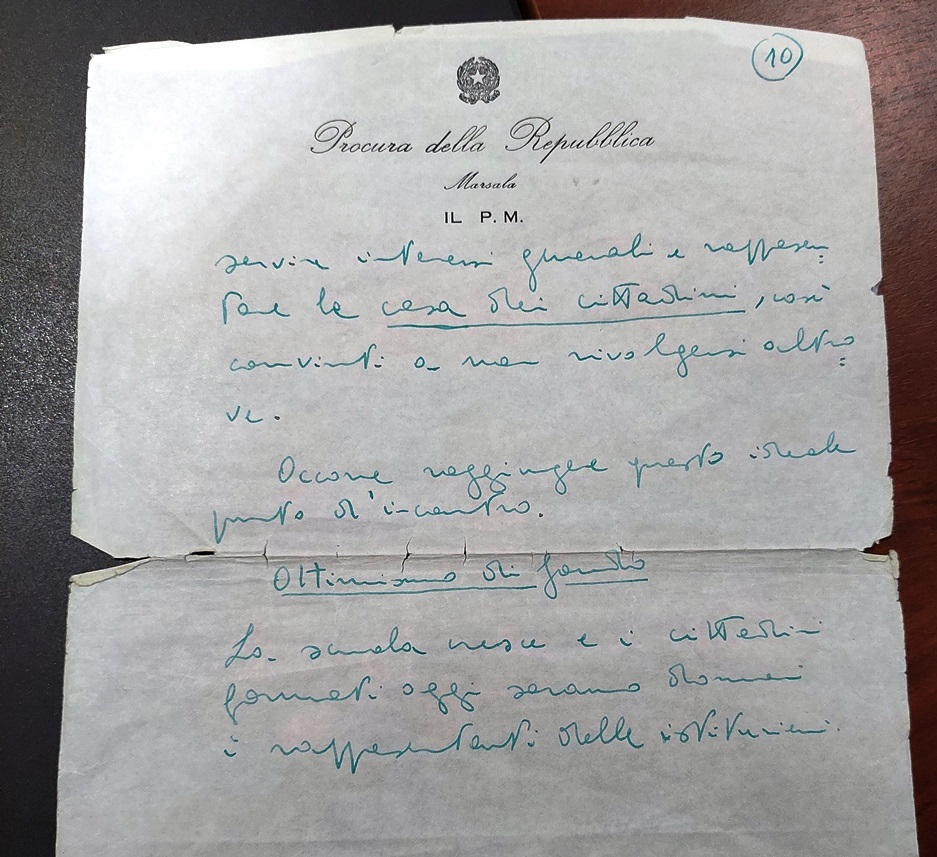 10
Procura della Repubblica
Marsala
IL P. M.
servire interessi generali e rappresen=
tare la casa dei cittadini, così
convinti a non rivolgersi altro=
ve.
Occorre raggiungere questo ideale
punto d'incontro.
Ottimismo di fondo
La scuola cresce e i cittadini
formati oggi saranno domani
i rappresentanti delle istituzioni.